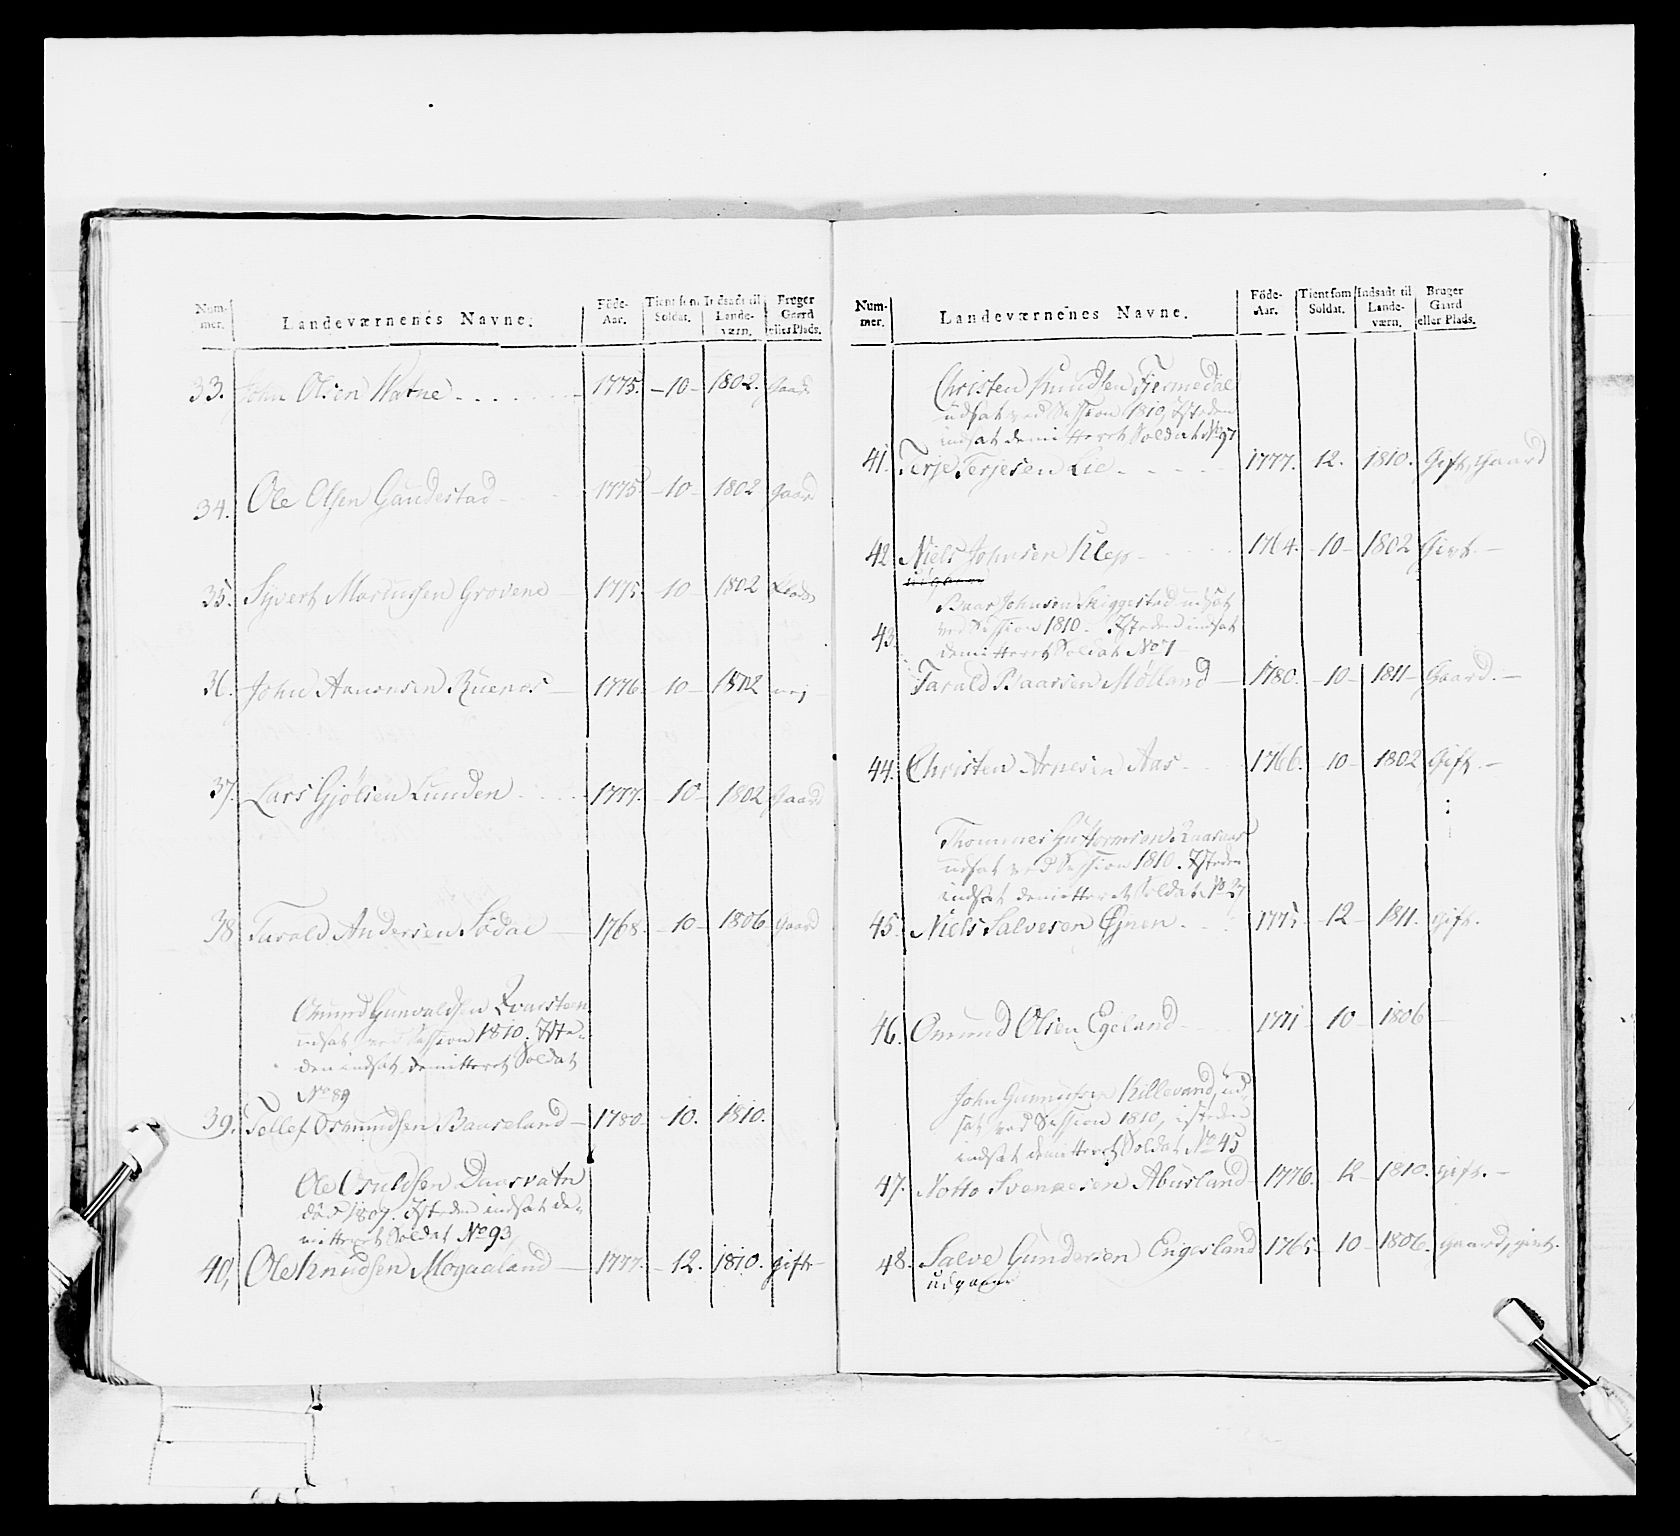 Num-
mer.
Landeværnenes Navne.
Föde-
Aar.
Tient som
Soldat.
Indsadt til
Lande-
værn.
Bruger
Gaard
eller Plads.
33. John Olsen Watne 1775. 10 1802. Gaard
34. Ole Olsen Gaudestad 1775 10 1802 Gaard
35. Syvert Grovene 1775 10 1802
36. John Aanonsen 1776. 10 1802 nej
37. Lars Gjølsen Lunden 1777. 10 1802 Gaard
38 Tarald Andersen Sødal 1768. 10 1806 Gaard
Omund Gunvaldsen
udsat ved Session 1810. Iste-
den indsat demitteret Soldat
No 89
39. Tellef Osmundsen 1780 10. 1810.
Ole Osuldsen
død 1807. Isteden indsat de-
mitteret Soldat No 93
40, Ole Knudsen 1777. 12. 1810. gift
Num-
mer.
Landeværnenes Navne.
Föde-
Aar.
Tient som
Soldat.
Indsadt til
Lande-
værn.
Bruger
Gaard
eller Plads.
Christen Knudsen Fjermedal
udsat ved Session 1810, Isteden
indsat demitteret Soldat No 97
41. Terje Terjesen Lie 1777. 12. 1810. Gift, Gaard
42 Niels Johnsen Klep 1764. 10 1802 Givt.
Baar Johnsen Skiggestad udsat
ved Session 1810. Isteden indsat
demitteret Soldat No 71
43. Tarald Baarsen Mølland 1780. 10 1811 Gaard.
44. Christen Arnesen Aas 1766. 10 1802 Gift.
Thommes Guttormsen
udsat ved Session 1810. Isteden
indsat demitteret Soldat No 27
45. Niels Salvesen 1775 12 1811. gift.
46. Omund Olsen Egeland 1771 10 1806
John Gunnufsen Killevand, ud-
sat ved Session 1810, isteden
indsat demitteret Soldat No 45
47. Notto Svennesen Abusland 1776. 12 1810. gift.
48. Salve Gundersen Engesland 1765 10 1806. gaard, givt.
udgaaer